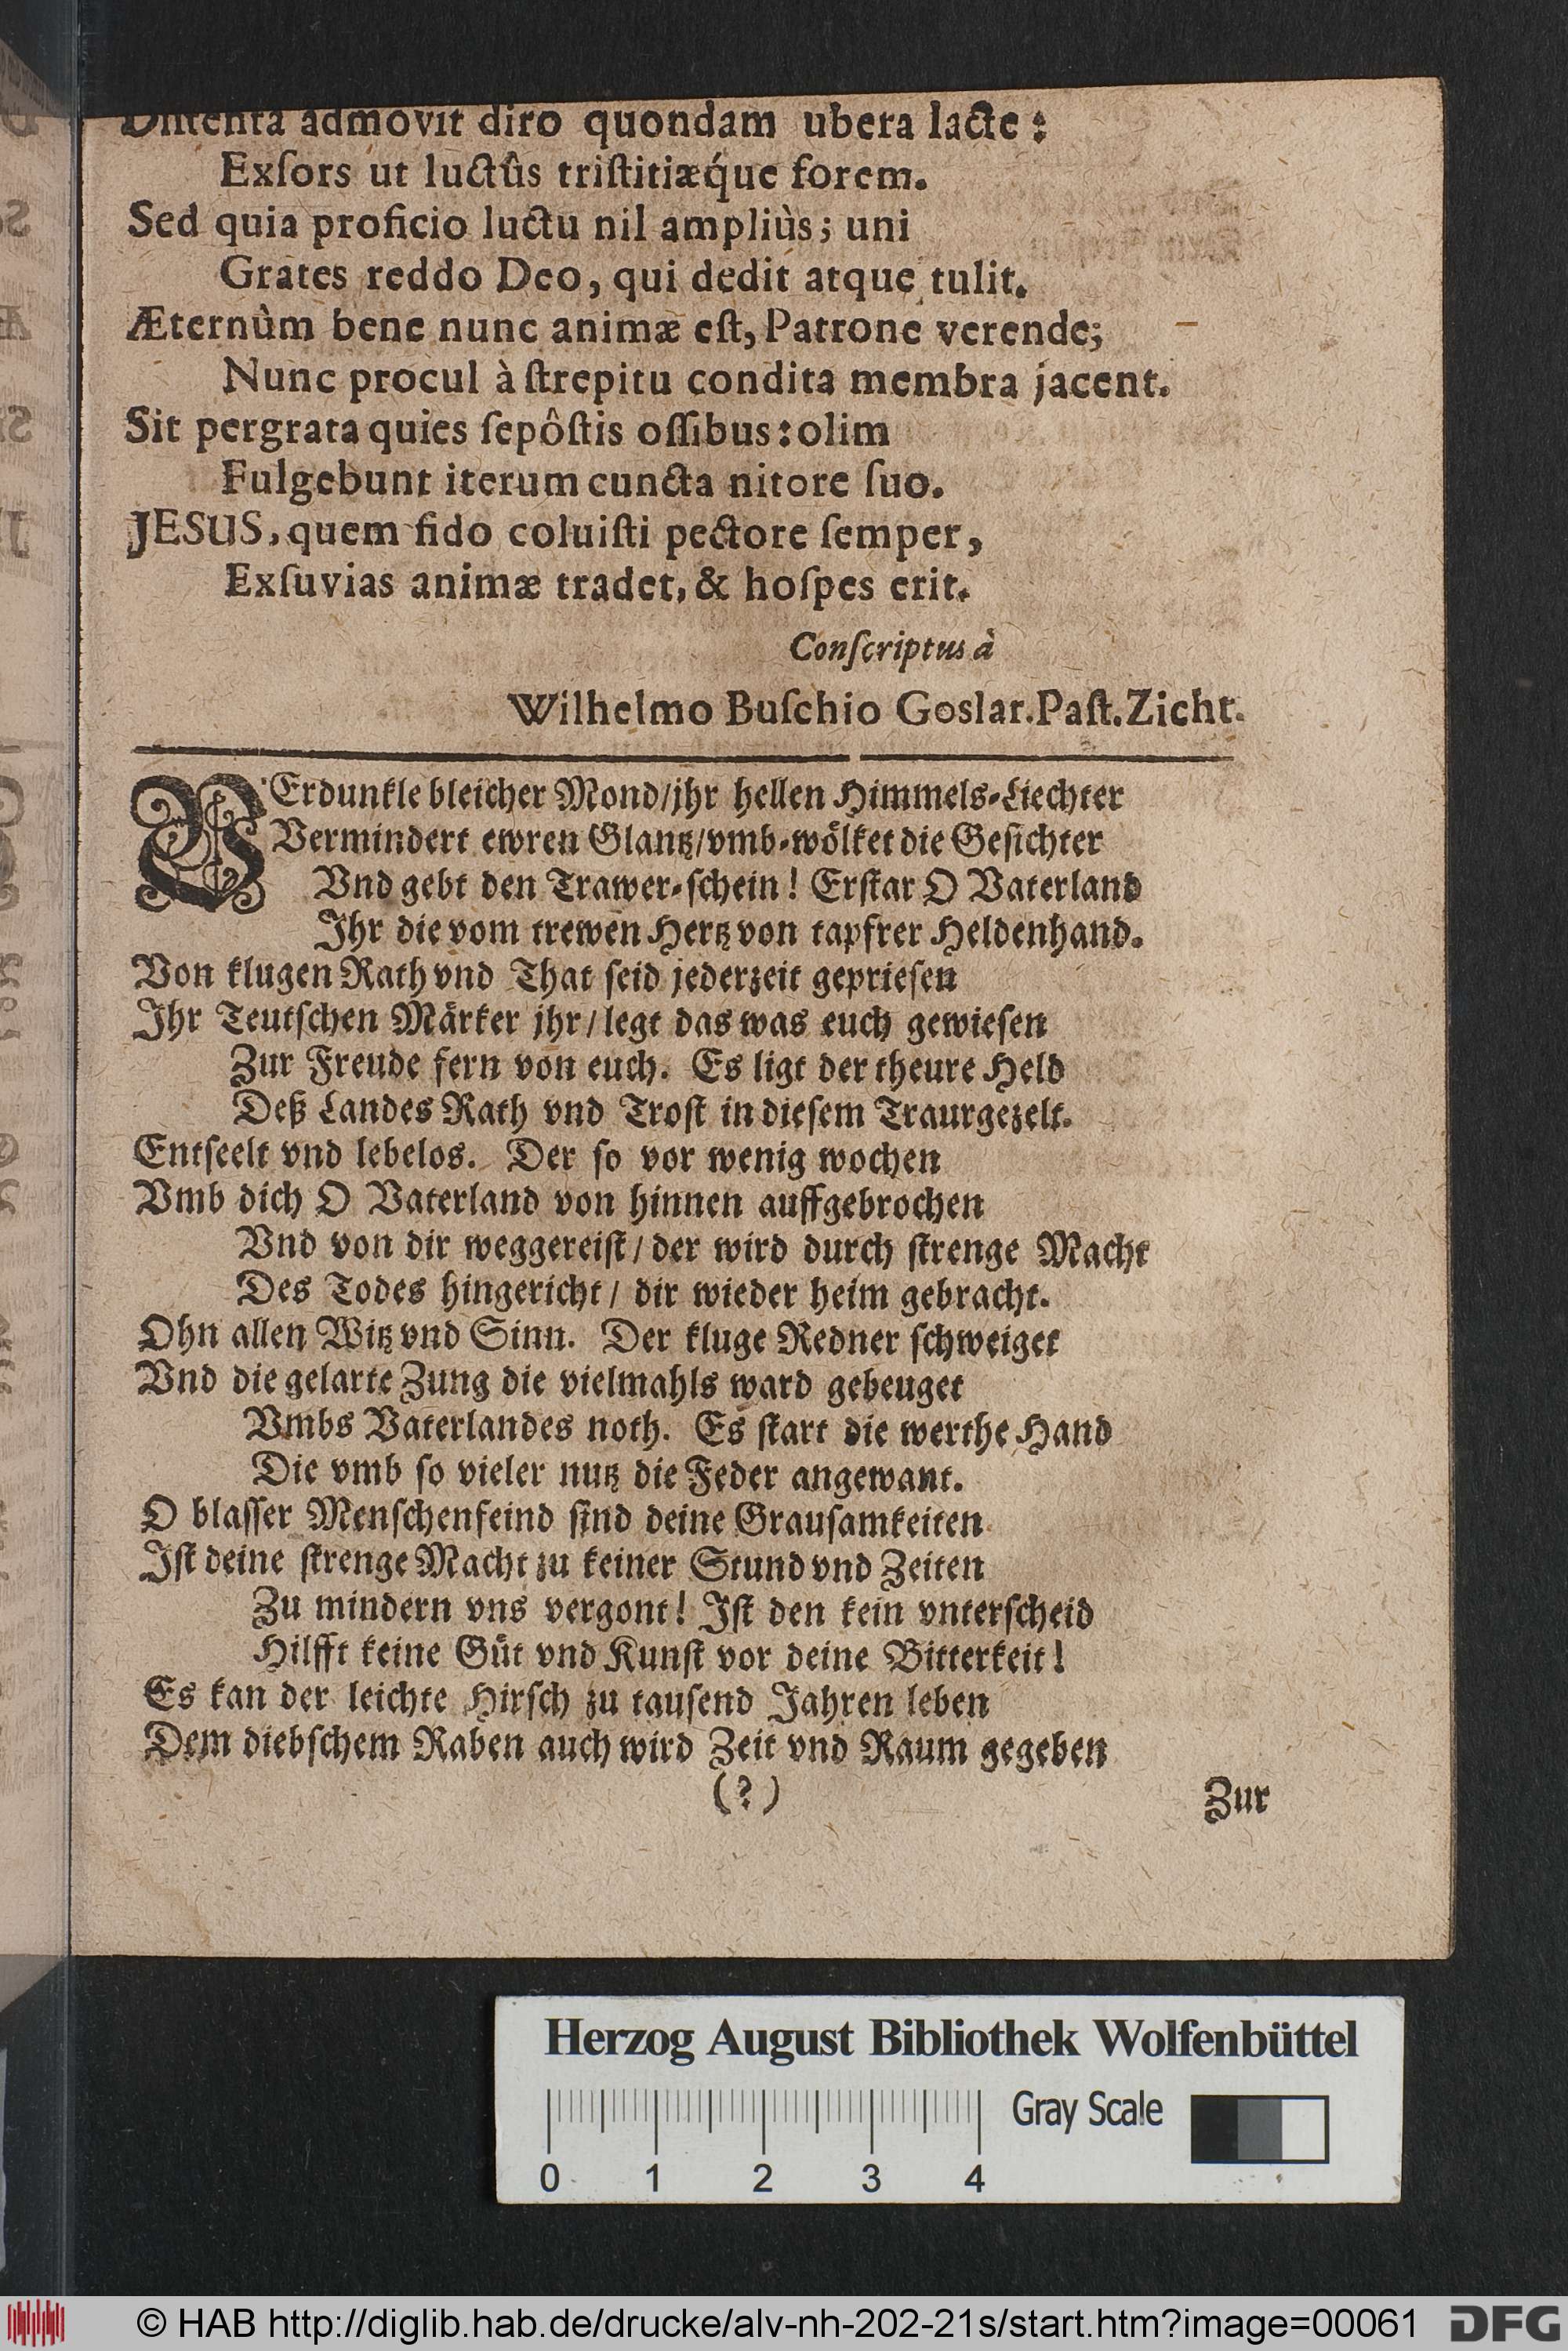 Distenta admovit diro quondam ubera lacte:
Exſors ut luctûs triſtitiæq́ue forem.
Sed quia proficio luctu nil ampliùs; uni
Grates reddo Deo, qui dedit atque tulit.
Æternùm bene nunc animæ eſt, Patrone verende;
Nunc procul à ſtrepitu condita membra jacent.
Sit pergrata quies ſepôſtis oſſibus: olim
Fulgebunt iterum cuncta nitore ſuo.
JESUS, quem fido coluiſti pectore ſemper,
Exſuvias animæ tradet, & hoſpes erit.
Conſcriptus à
Wilhelmo Buſchio Goslar. Paſt. Zicht.
VErdunkle bleicher Mond/jhr hellen Himmels-Liechter
Vermindert ewren Glantz/vmb-woͤlket die Geſichter
Vnd gebt den Trawer-ſchein! Erſtar O Vaterland
Ihr die vom trewen Hertz von tapfrer Heldenhand.
Von klugen Rath vnd That ſeid jederzeit geprieſen
Ihr Teutſchen Maͤrker jhr/legt das was euch gewieſen
Zur Freude fern von euch. Es ligt der theure Held
Deß Landes Rath vnd Troſt in dieſem Traurgezelt.
Entſeelt vnd lebelos. Der ſo vor wenig wochen
Vmb dich O Vaterland von hinnen auffgebrochen
Vnd von dir weggereiſt/der wird durch ſtrenge Macht
Des Todes hingericht/ dir wieder heim gebracht.
Ohn allen Witz vnd Sinn. Der kluge Redner ſchweiget
Vnd die gelarte Zung die vielmahls ward gebeuget
Vmbs Vaterlandes noth. Es ſtart die werthe Hand
Die vmb ſo vieler nutz die Feder angewant.
O blaſſer Menſchenfeind ſind deine Grauſamkeiten
Iſt deine ſtrenge Macht zu keiner Stund vnd Zeiten
Zu mindern vns vergont! Iſt den kein vnterſcheid
Hilfft keine Guͤt vnd Kunſt vor deine Bitterkeit!
Es kan der leichte Hirſch zu tauſend Jahren leben
Dem diebſchem Raben auch wird Zeit vnd Raum gegeben
(?)
Zur
Herzog August Bibliothek Wolfenbüttel
Gray Scale
0 1 2 3 4
© HAB http://diglib.hab.de/drucke/alv-nh-202-21s/start.htm?image=00061
DFG